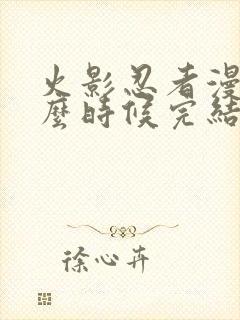 火影忍者漫
麼時候完結
徐心卉